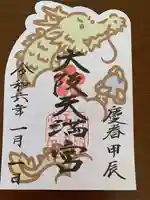 慶春甲辰
大阪天満宮
令和六年一月一日